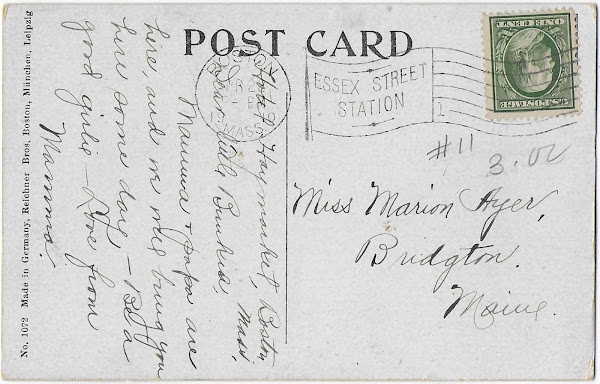 POST CARD
BOSTON
MASS.
ESSEX STREET
STATION
1
ONE CENT
U.S. POSTAGE
#11
3.00
Miss Marion Ayer,
Bridgton.
Maine.
Hotel Haymarket, Boston
Mass,
Dear little
Mamma & papa are
here, and we will bring you
here some day – Be a
good girlie – Love from
Mamma.
No. 1072 Made in Germany, Reichner Bros. Boston, München, Leipzig